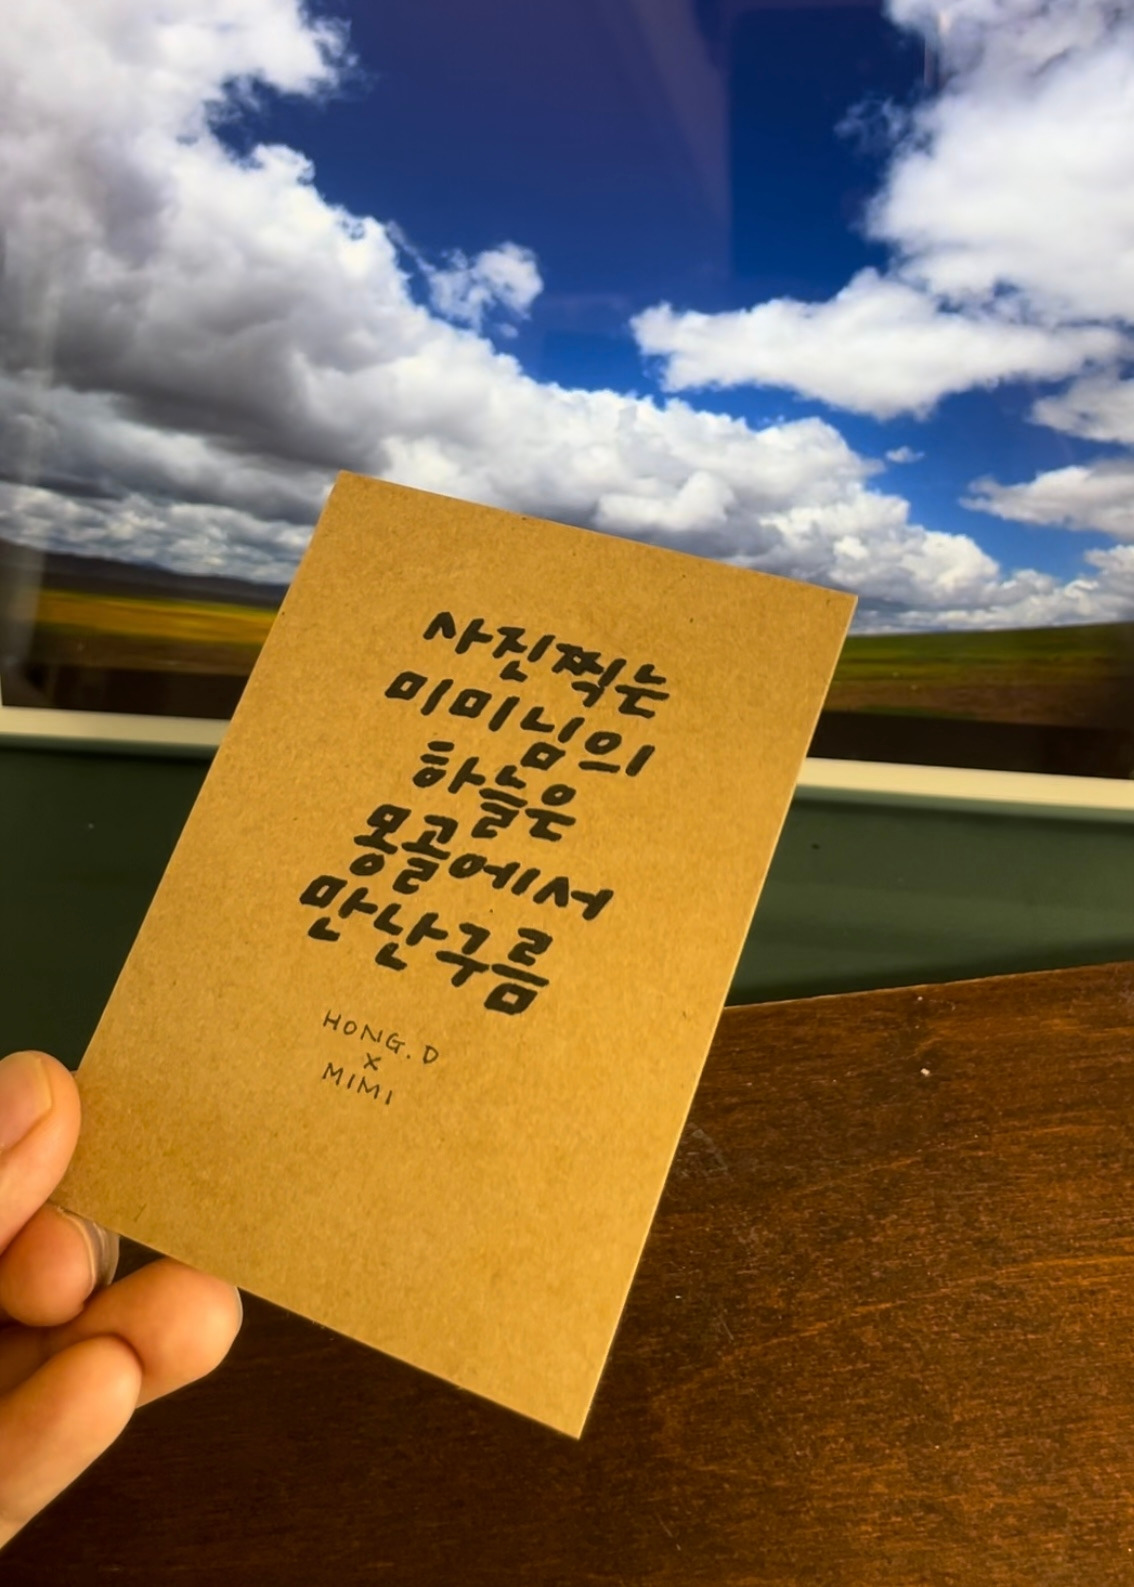 사진찍는
미미님의
하늘은
몽골에서
만난구름
HONG. D
X
MIMI